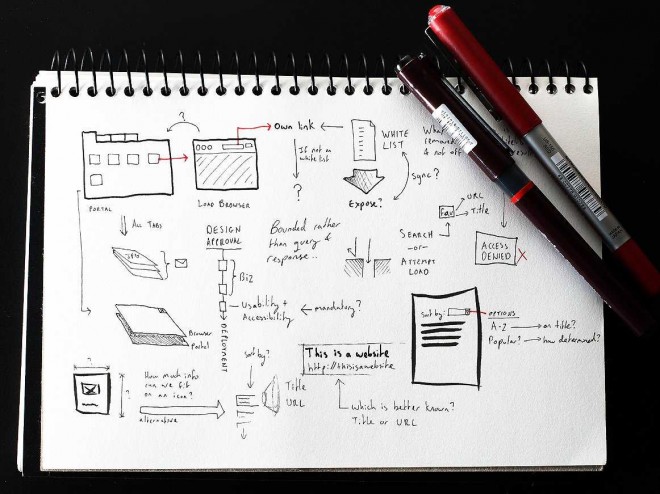 ?
Own link
If not on
white list
?
WHITE
LIST
Sync?
Expose?
What
removed
& not off
PORTAL
LOAD BROWSER
URL
Fav
Title
ALL TABS
DESIGN
APPROVAL
Bounded rather
than query &
response..
SEARCH
-or-
ATTEMPT
LOAD
ACCESS
DENIED
Biz
Usability +
Accessibility
mandatory?
DEPLOYMENT
Browser
Portal
Sort by:
OPTIONS
A-Z
on title?
Popular?
how determined?
?
?
How much info
can we fit
on an icon?
alternative
Sort by?
Title
URL
This is a website
http://thisisawebsite
which is better known?
Title or URL